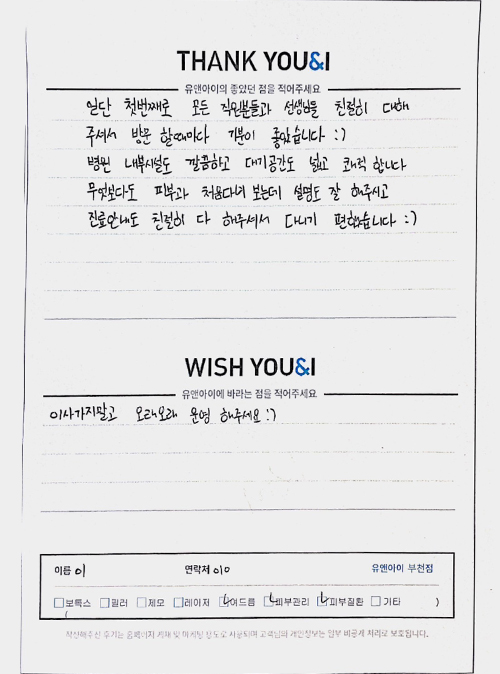 THANK YOU&I
유앤아이의 좋았던 점을 적어주세요
일단 첫번째로 모든 직원분들과 선생님들 친절히 대해
주셔서 방문 할때마다 기분이 좋았습니다 :)
병원 내부시설도 깔끔하고 대기공간도 넓고 쾌적 합니다
무엇보다도 피부과 처음다녀 보는데 설명도 잘 해주시고
진료안내도 친절히 다 해주셔서 다니기 편했습니다 :)
WISH YOU&I
유앤아이에 바라는 점을 적어주세요
이사가지말고 오래오래 운영 해주세요 :)
이름 이 연락처 010 유앤아이 부천점
보톡스 필러 제모 레이저 여드름 피부관리 피부질환 기타 )
(
작성해주신 후기는 홈페이지 게재 및 마케팅 용도로 사용되며 고객님의 개인정보는 일부 비공개 처리로 보호됩니다.